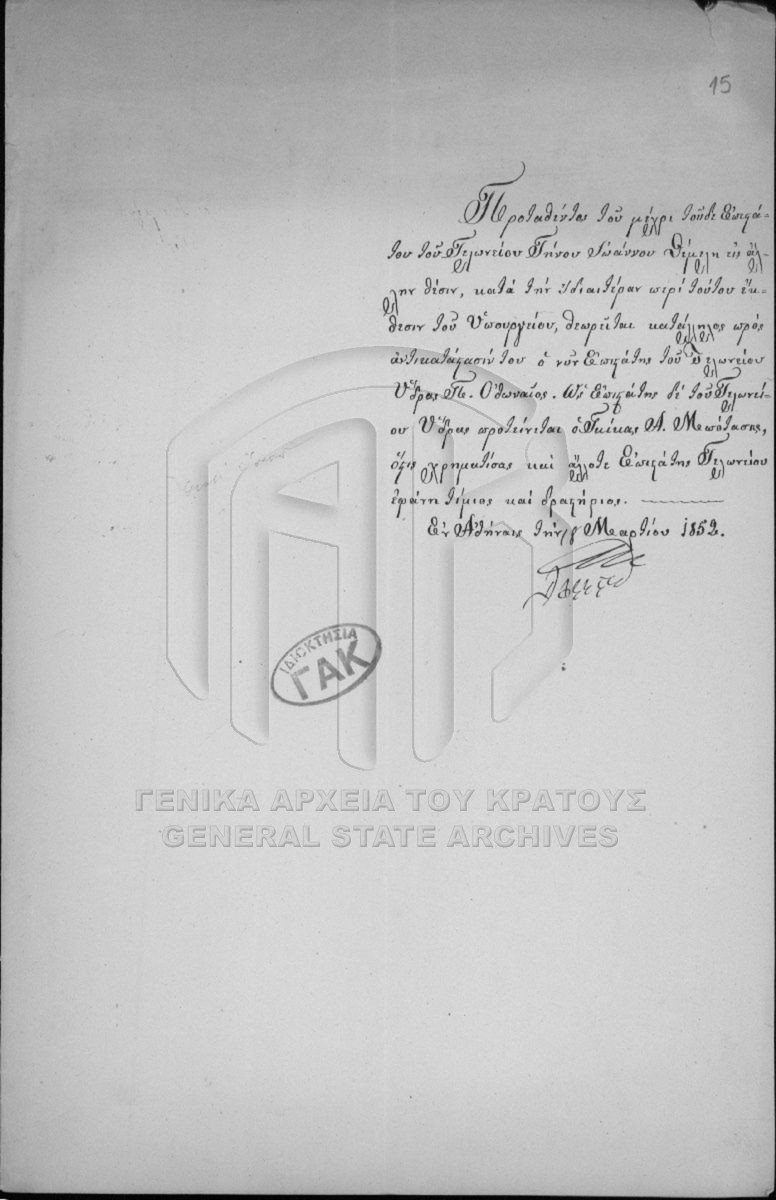 15
Προταθέντος τοῦ μέχρι τοῦδε Ἐπιστά-
του τοῦ Τελωνείου Τήνου Ἰωάννου Θέμελη εἰς ἄλ-
λην θέσιν, κατὰ τὴν ἰδιαιτέραν περὶ τούτου ἔκ-
θεσιν τοῦ Ὑπουργείου, θεωρεῖται κατάλληλος πρὸς
ἀντικατάστασίν του ὁ νῦν Ἐπιστάτης τοῦ Τελωνείου
Ὕδρας Π. Ὀθωναῖος. Ὡς Ἐπιστάτης δὲ τοῦ Τελωνεί-
ου Ὕδρας προτείνεται ὁ Γκίκας Α. Μπότασης,
ὅστις χρηματίσας καὶ ἄλλοτε Ἐπιστάτης Τελωνείου
ἐφάνη τίμιος καὶ δραστήριος.
Ἐν Ἀθήναις τὴν 18 Μαρτίου 1852.
ΙΔΙΟΚΤΗΣΙΑ
ΓΑΚ
ΓΕΝΙΚΑ ΑΡΧΕΙΑ ΤΟΥ ΚΡΑΤΟΥΣ
GENERAL STATE ARCHIVES